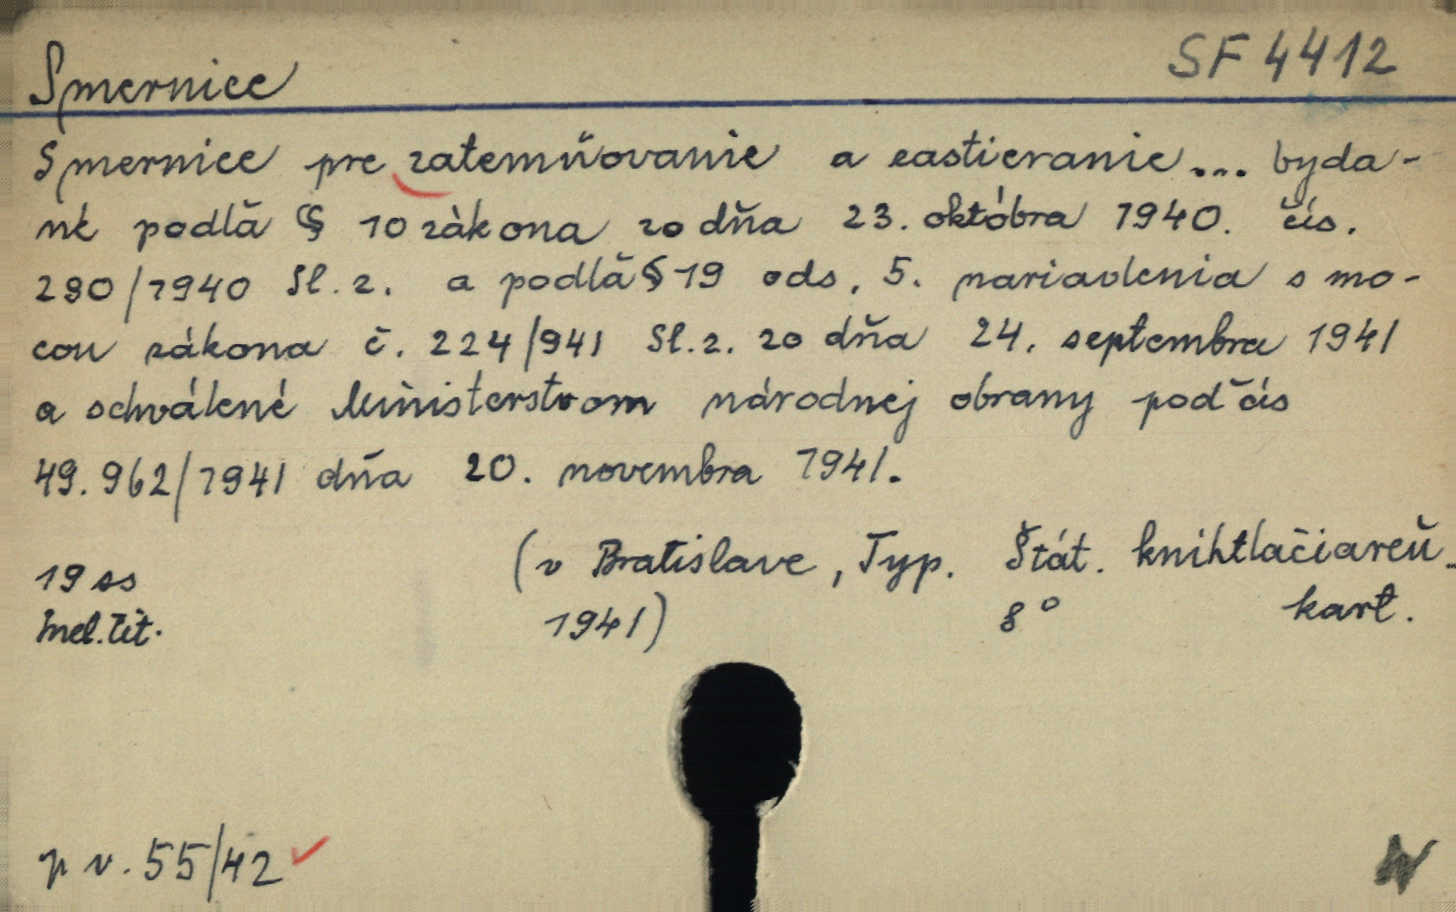 SF 4412
Smernice
Smernice pre zatemňovanie a eastieranie... byda-
né podlă § 10 zákona zo dňa 23. októbra 1940. čís.
290/1940 Sl. z. a podlă § 19 ods. 5. nariadenia s mo-
cou zákona č. 224/941 Sl. z. zo dňa 24. septembra 1941
a schválené Ministerstvom národnej obrany pod čís
49.962/1941 dňa 20. novembra 1941.
(v Bratislave, Typ. Štát. knihtlačiareň.
19 ss
1941) 8° kart.
tit.
p v. 55/42